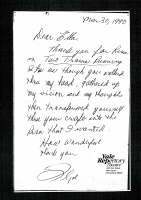 Mar 30, 1990
Dear Ella
Thank you for Rose
in Two Trains Running
It is as though you walked
thru my head, gathered up
my vision and my thoughts
then transformed yourself
thru your craft into the
person that I wanted.
How wonderful
thank you
Yale
Repertory
Theatre